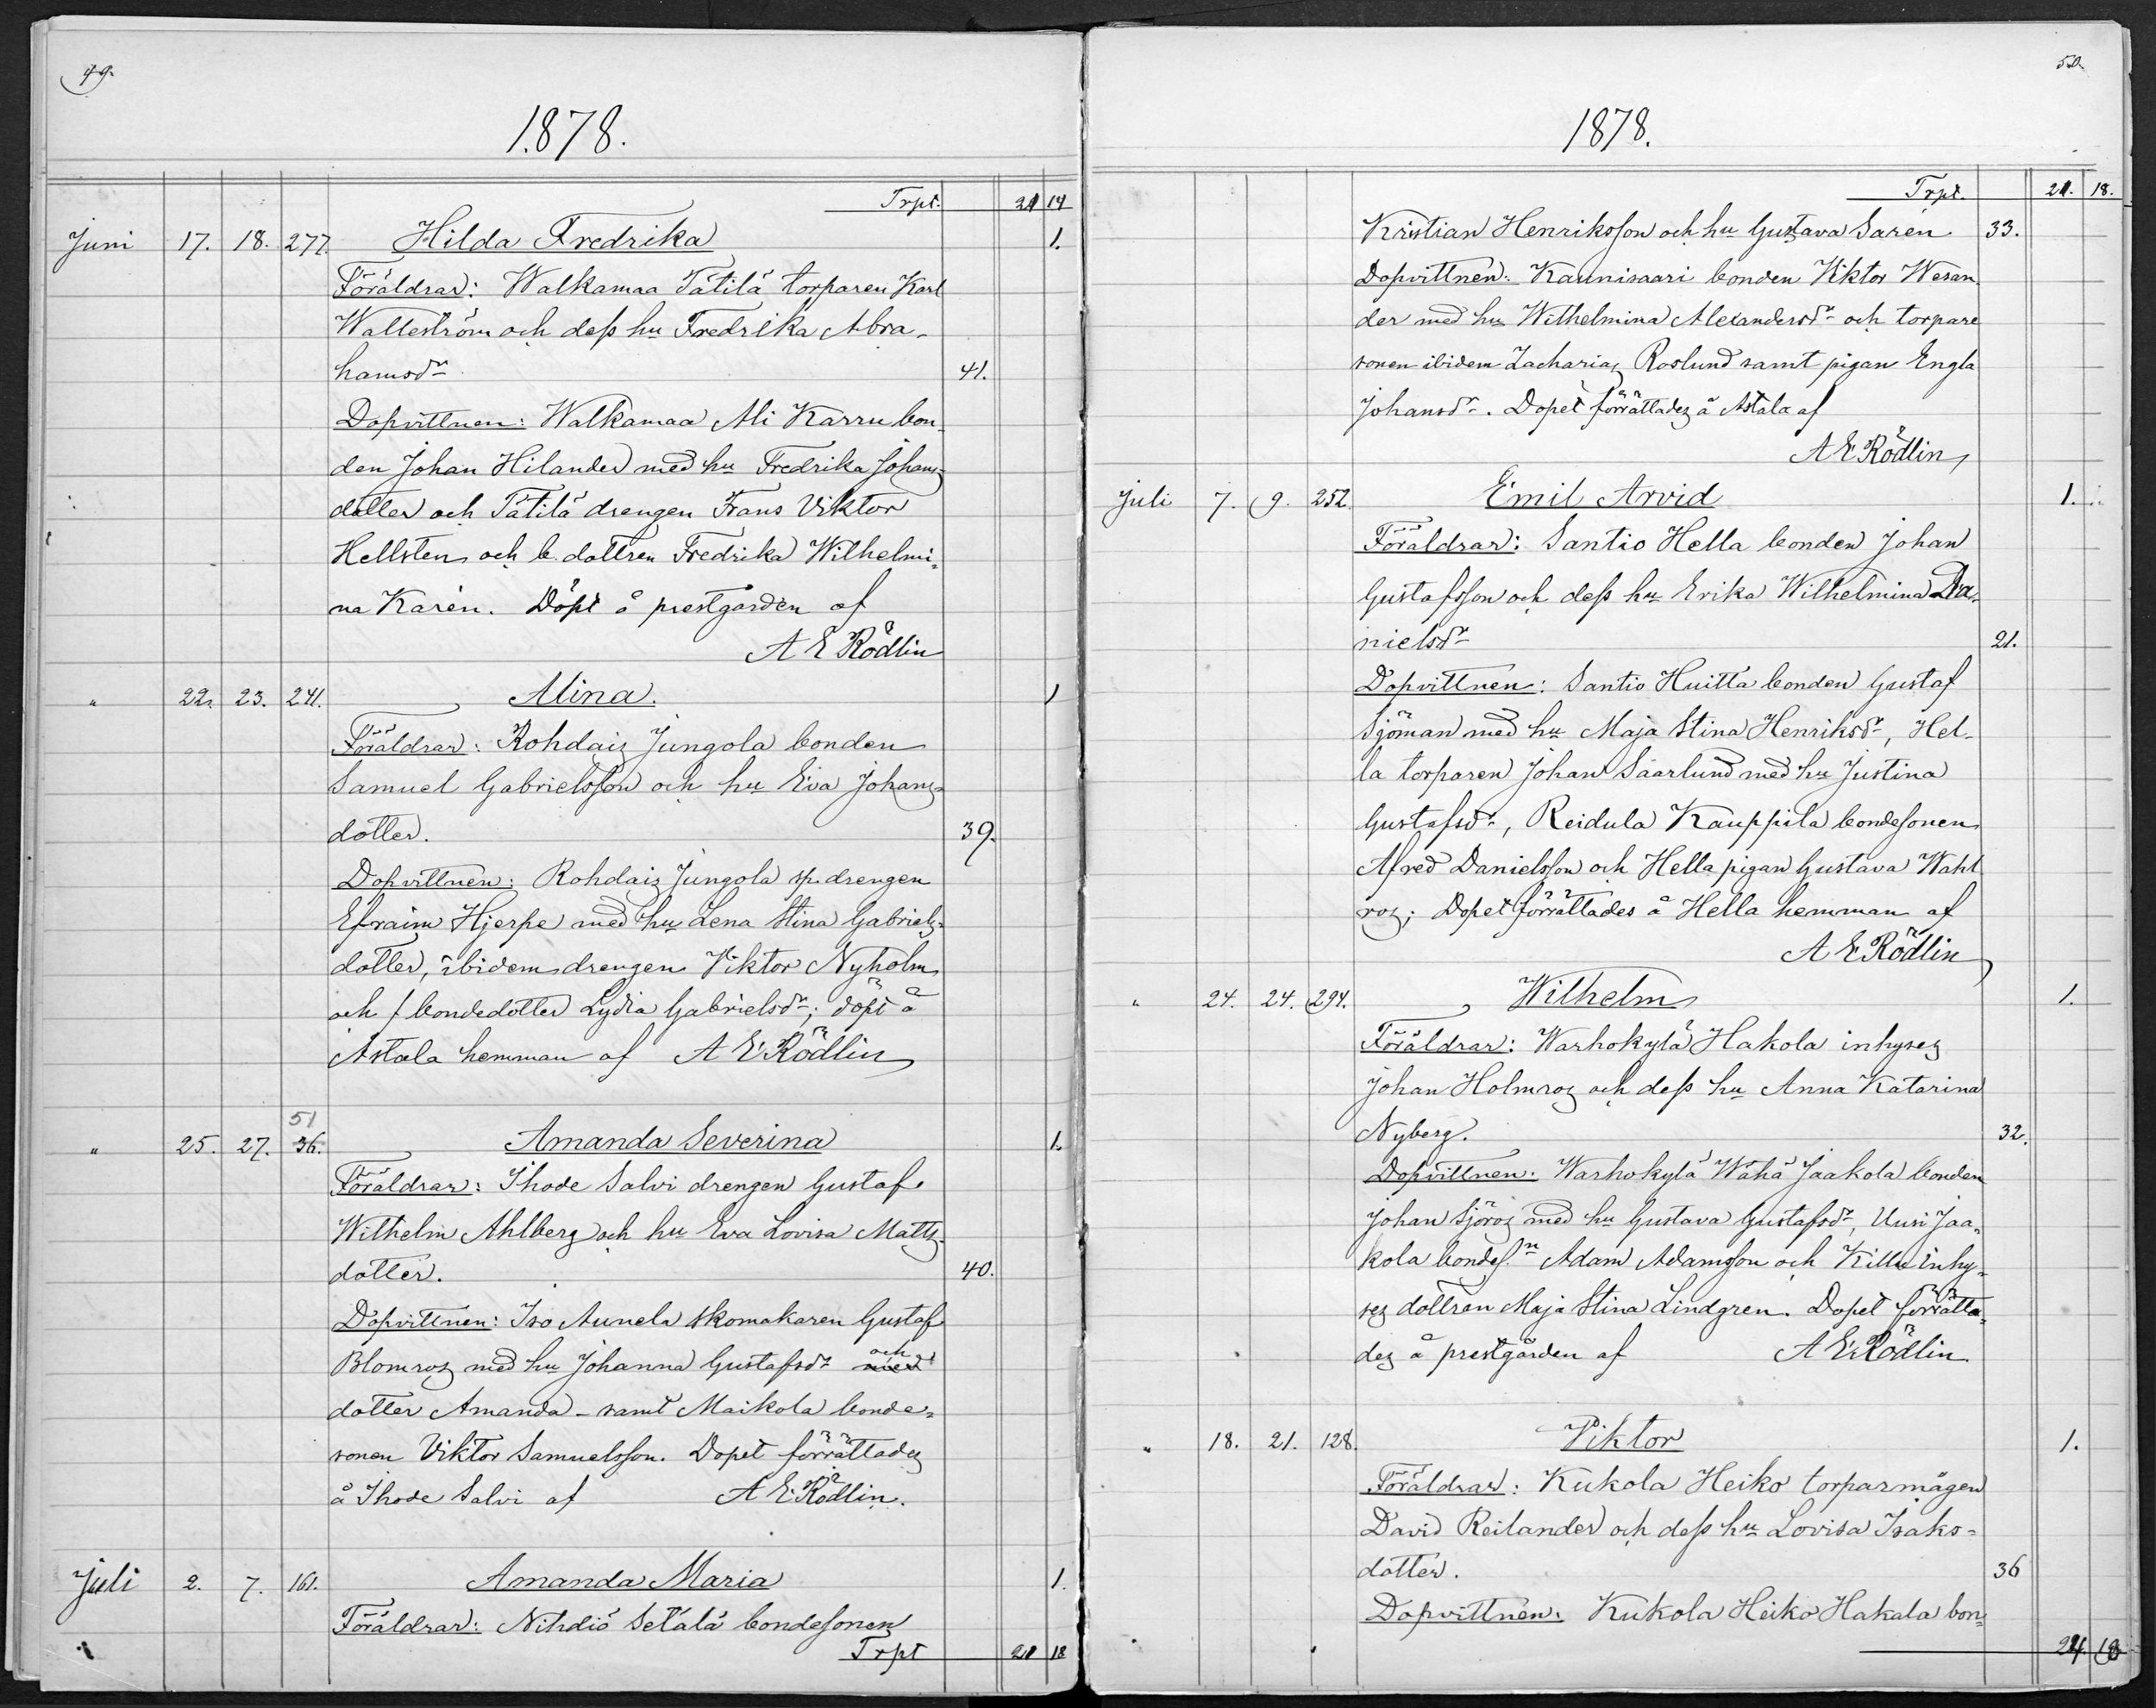 49.
1878.
Trpt. 21 14
Juni 17. 18. 277. Hilda Fredrika 1.
Föräldrar: Walkamaa Tätilä torparen Karl
Walleström och dess hu Fredrika Abra-
hamsdr 41.
Dopvittnen: Walkamaa Ali Karru bon-
den Johan Hilander med hu Fredrika Johans
dotter och Tätilä drengen Frans Viktor
Hellsten och b. dottren Fredrika Wilhelmi-
na Karén. Döpt å prestgården af
A E Rödlin
" 22. 23. 241. Alina. 1
Föräldrar: Rohdais Jungola bonden
Samuel Gabrielsson och hu Eva Johans-
dotter. 39.
Dopvittnen: Rohdais Jungola sp. drengen
Efraim Hjerpe med hu Lena Stina Gabriels-
dotter, ibidem drengen Viktor Nyholm
och bondedotter Lydia Gabrielsdr; döpt å
Astala hemman af A E Rödlin
51
" 25. 27. 36. Amanda Severina 1.
Föräldrar: Ihode Salvi drengen Gustaf
Wilhelm Ahlberg och hu Eva Lovisa Matts-
dotter. 40.
Dopvittnen: Iso Aunela skomakaren Gustaf
Blomros med hu Johanna Gustafsdr med och
dotter Amanda - samt Maikola bonde-
sonen Viktor Samuelsson. Dopet förrättades
å Ihode Salvi af A E Rödlin.
Juli 2. 7. 161. Amanda Maria 1.
Föräldrar: Nihdiö Setälä bondesonen
Trpt 21 18
50.
1878.
Trpt. 21. 18.
Kristian Henriksson och hu Gustava Sarén 33.
Dopvittnen: Kaunisaari bonden Viktor Wesan
der med hu Wilhelmina Alexandersdr och torpare
sonen ibidem Zacharias Roslund samt pigan Engla
Johansdr. Dopet förrättades å Astala af
A E Rödlin
Juli 7. 9. 252. Emil Arvid 1.
Föräldrar: Santio Hella bonden Johan
Gustafsson och dess hu Erika Wilhelmina Da-
nielsdr 21.
Dopvittnen: Santio Huitta bonden Gustaf
Sjöman med hu Maja Stina Henriksdr, Hel-
la torparen Johan Saarlund med hu Justina
Gustafsdr, Reidula Kauppila bondesonen
Alfred Danielsson och Hella pigan Gustava Wahl
ros; Dopet förrättades å Hella hemman af
A E Rödlin
" 24. 24. 294. Wilhelm 1.
Föräldrar: Warhokylä Hakola inhyses
Johan Holmros och dess hu Anna Katarina
Nyberg. 32.
Dopvittnen: Warhokylä Wähä Jaakola bonden
Johan Sjöros med hu Gustava Gustafsdr, Uusi Jaa-
kola bondesn Adam Adamsson och Killu inhy-
ses dottren Maja Stina Lindgren. Dopet förrätta-
des å prestgården af A E Rödlin
" 18. 21. 128. Viktor 1.
Föräldrar: Kukola Heiko torparmågen
David Reilander och dess hu Lovisa Isaks-
dotter. 36
Dopvittnen: Kukola Heiko Hakala bon-
24. 18